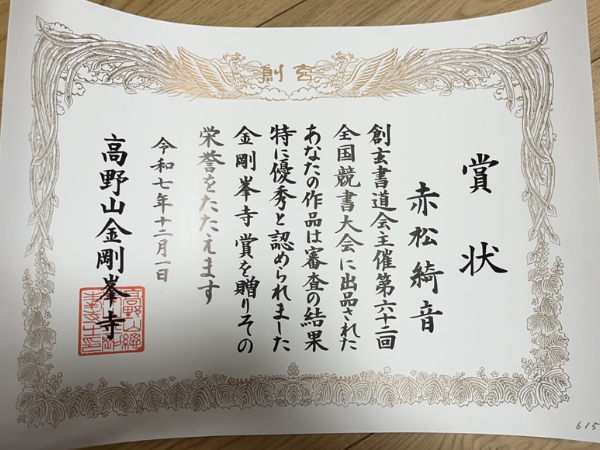 創玄
賞状
赤松綺音
創玄書道会主催第六十二回
全国競書大会に出品された
あなたの作品は審査の結果
特に優秀と認められました
金剛峯寺賞を贈りその
栄誉をたたえます
令和七年十二月一日
高野山金剛峯寺
615